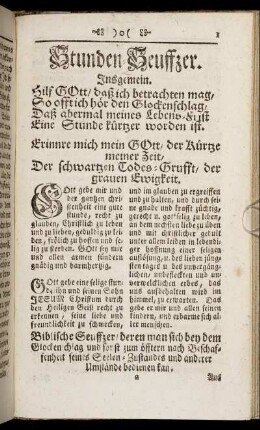 )o( 1
Stunden Seuffzer.
Insgemein.
Hilf GOtt/ daß ich betrachten mag/
So offt ich hör den Glockenschlag/
Daß abermal meines Lebens-Frist
Eine Stunde kürtzer worden ist.
Erinnre mich mein GOtt/ der Kürtze
meiner Zeit/
Der schwartzen Todes-Grufft/ der
grauen Ewigkeit.
GOtt gebe mir und
der gantzen Christenheit
eine gute
stunde, recht zu
glauben, Christlich zu leben
und zu wandeln, gedultig zu leiden,
frölich zu hoffen und selig
zu sterben. GOtt sey mir
und allen armen sündern
gnädig und barmhertzig.
GOtt gebe eine selige stunde,
ihn und seinen Sohn
JESUM Christum durch
den Heiligen Geist recht zu
erkennen, seine liebe und
freundlichkeit zu schmecken,
und im glauben zu ergreiffen
und zu halten, und durch
gnade und krafft,
gerecht und selig zu leben, an
dem nechsten liebe zu üben
und mit christlicher gedult
unter allen leiden in
hoffnung einer seligen
auflösung, des lieben jüngsten
tages u. des unvergänglichen,
unbefleckten und unverwelcklichen
erbes, das
uns aufbehalten wird im
himmel, zu erwarten. Das
gebe er mir und allen seinen
kindern, und erbarme sich aller
menschen.
Biblische Seuffzer/ deren man sich bey dem
Glockenschlag und sonst zum öfftern nach Beschaffenheit
seines Seelen-Zustandes und anderer
Umstände bedienen kan.
a Aus